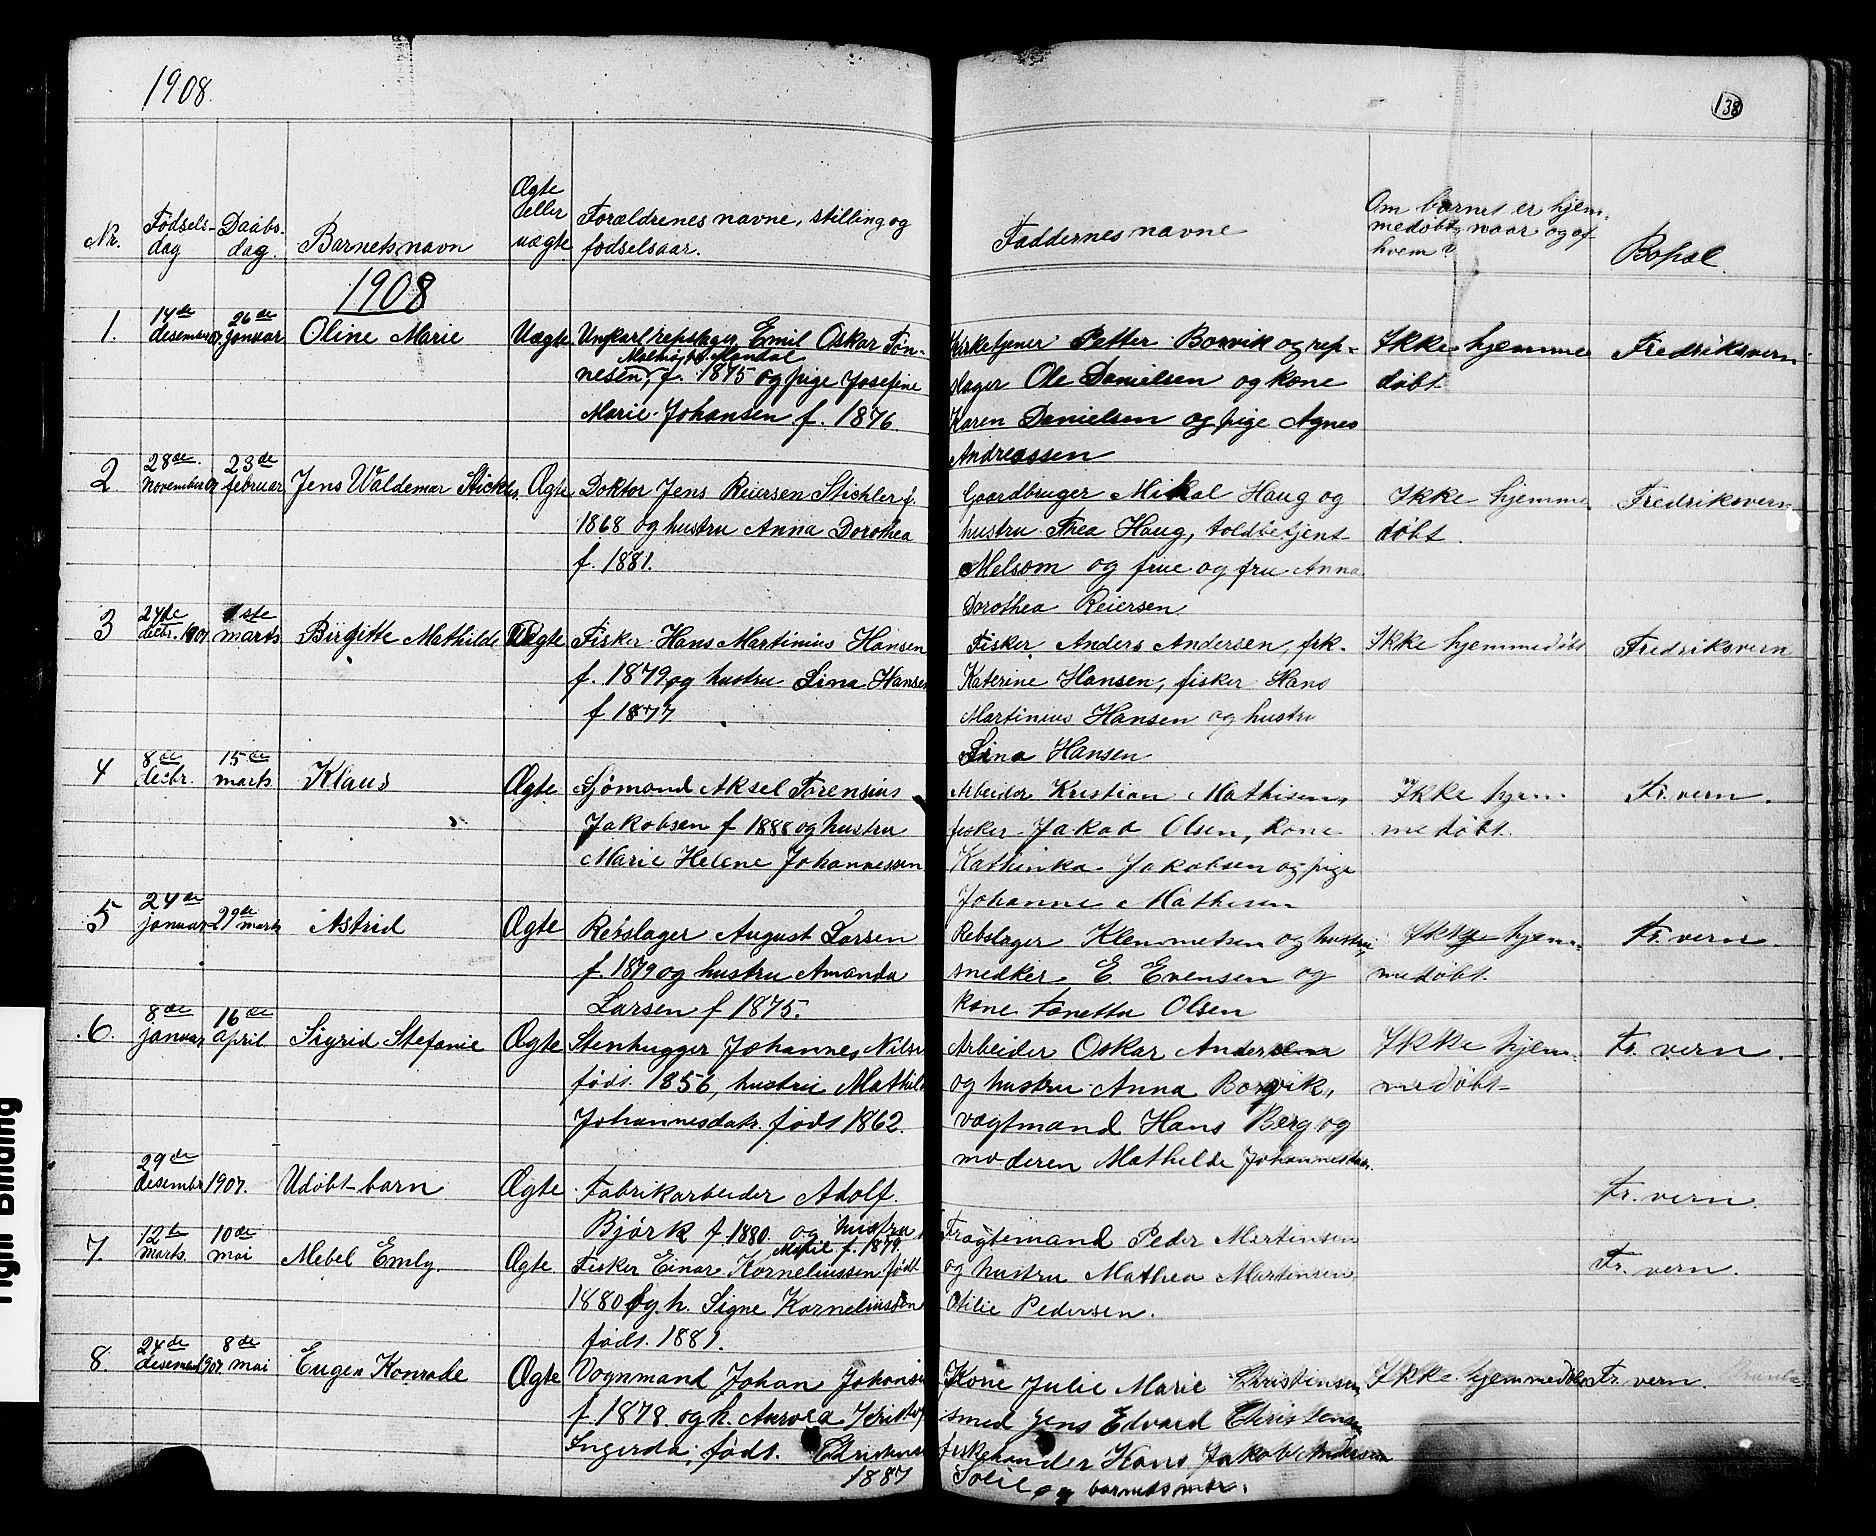 1908.
138
Nr.
Fødsels-
dag
Daabs-
dag.
Barnets navn
Ægte
eller
uægte
Forældrenes navne, stilling og
fødselsaar.
Faddernes navne
Om barnet er hjem-
medøbt, naar og af
hvem?
Bopæl.
1908
1.
14de
desember 07
26de
januar
Oline Marie
Uægte
Ungkarl repslager Emil Oskar Tøn-
Mandal
nesen, f. 1875 og pige Josefine
Marie Johansen f. 1876.
Kirketjener Petter Borvik og rep-
slager Ole Danielsen og kone
Karen Danielsen og pige Agnes
Andreassen
Ikke hjemme
døbt
Fredriksvern
2
28de
november 07
23de
februar
Jens Waldemar Stickler
Ægte
Doktor Jens Reiersen Stichler f.
1868 og hustru Anna Dorothea
f. 1881.
Gaardbruger Mikal Haug og
hustru Thea Haug, toldbetjent
Melsom og frue og fru Anna
Dorothea Reiersen
Ikke hjemme
døbt.
Fredriksvern
3
24de
decbr. 1907
1ste
marts
Birgitte Mathilde
Ægte
Fisker Hans Martinius Hansen
f. 1879 og hustru Lina Hansen
f 1877
Fisker Anders Andersen, frk.
Katerine Hansen, fisker Hans
Martinius Hansen og hustru
Lina Hansen
Ikke hjemmedøbt
Fredriksvern
4
8de
decbr.
15de
marts
Klaus
Ægte
Sjømand Aksel Torensius
Jakobsen f 1888 og hustru
Marie Helene Johannessen
Arbeider Kristian Mathisen,
fisker Jakob Olsen, kone
Kathinka Jakobsen og pige
Johanne Mathisen
Ikke hjem-
medøbt.
Fr. vern.
5
24de
januar
29de marts
Astrid
Ægte
Rebslager August Larsen
f. 1879 og hustru Amanda
Larsen f 1875.
Rebslager Klemmetsen og hustru,
snedker E. Evensen og
kone Tonetta Olsen
Ikke hjem-
medøbt.
Fr. vern.
6.
8de
januar
16de
april
Sigrid Stefanie
Ægte
Stenhugger Johannes Nilsen
født 1856, hustru Mathilde
Johannesdatr. født 1862.
Arbeider Oskar Andersen
og hustru Anna Borgvik,
vagtmand Hans Berg og
moderen Mathilde Johannesdatr.
Ikke hjem-
medøbt
Fr. vern.
29de
desembr 1907.
Udøbt barn
Ægte
Fabrikarbeider Adolf
Bjørk f. 1880 og hustru
f. 1879
Fr. vern.
7.
12te
marts.
10de
mai
Mebel Emly.
Ægte
Fisker Einar Korneliussen født
1880 og h. Signe Korneliussen
født. 1881.
Fragtemand Peder Martinsen
og hustru Mathea Martinsen
Otilie Pedersen.
Fr. vern.
8.
24de
desember 1907
8de
mai
Eugen Konrade
Ægte
Vognmand Johan Johansen
f. 1878 og h. Aurora Kristof
Ingerda, født. Christensen
1887
Kone Julie Marie Christensen
smed Jens Edvard Christensen
fiskehandler Hans Jakob Andersen
Solie og barnets mor.
Ikke hjemmedøbt
Fr. vern.
Tight Binding